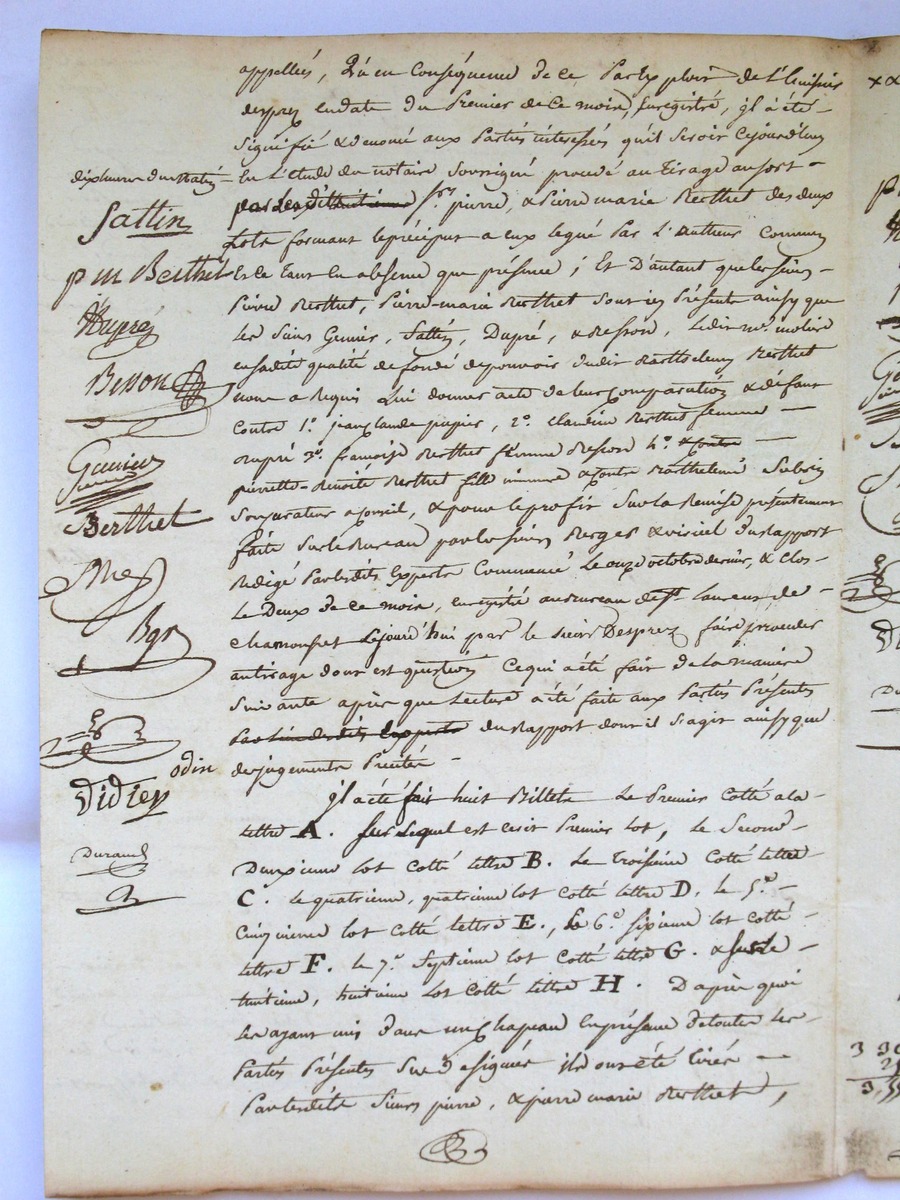 appellées, Qu'en Conséquence de ce Par Exploit de L'huissier
desprez en date du Premier de ce mois, Enregistré, jl a été
signifié & dénoncé aux Parties interessées qu'il seroit Cejourd'huy
En L'étude du notaire soussigné procédé au Tirage au sort
par lesdits srs pierre, & Pierre marie Berthet des deux
Lots formant le préciput a eux legué Par L'autheur Commun
Et ce Tant En absence que présence ; Et D'autant que les sieurs
Pierre Berthet, Pierre-marie Berthet sous ici Présents ainsy que
Les Sieurs Genier, Sattin, Dupré, & Besson, Ledit
en sadite qualité de fondé de pouvoir dudit Barthelemy Berthet
nous a Requis Lui donner acte de leur Comparution & défaut
contre 1°. jean claude papier, 2°. claudine Berthet femme
Dupré 3°. françoise Berthet femme Besson 4°. & contre
pierrette-Benoite Berthet fille mineure & contre Barthelemi
Son curateur a conseil, & pour le profit sur la Remise présentement
faite sur le Bureau par les sieurs Berger & du Rapport
Rédigé Par lesdits Experts Commencé Le onze octobre dernier, & clos
Le Deux de ce mois, enregistré au Bureau de st. Laurent de
chamousset Cejourd'hui par le sieur Desprez faire procéder
au tirage dont est question Ce qui a été fait de La maniere
suivante après que Lecture a été faite aux Parties Présentes
Par Lun desdits Experts du Rapport dont il s'agit ainsy que
des jugements Précités
jl a été fait huit Billets Le Premier Cotté a la
Lettre A. sur Lequel est écrit Premier Lot, Le Second
Deuxieme Lot Cotté Lettre B. Le Troisieme Cotté Lettre
C. Le quatrieme, quatrieme Lot Cotté Lettre D, Le 5.e
Cinquieme Lot Cotté Lettre E., Le 6.e sixieme Lot Cotté
Lettre F. Le 7.e Septieme Lot Cotté Lettre G. & sur le
huitieme, huitieme Lot Cotté Lettre H. D'après quoi
Les ayant mis dans un Chapeau En présence de toutes Les
Parties Présentes Sus désignées ils ont été tirés
Par lesdits Sieurs pierre, & pierre marie Berthet,
dix heures du Matin
Sattin
p m Berthet
Dupré
Besson
Genier
Berthet
Bgr
odin
Didier
Durand